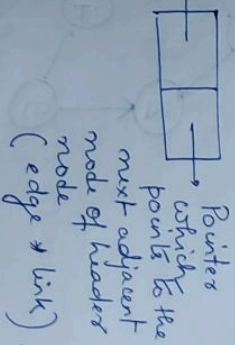 Pointer
which
points to the
next adjacent
node of header
node
(edge * link)